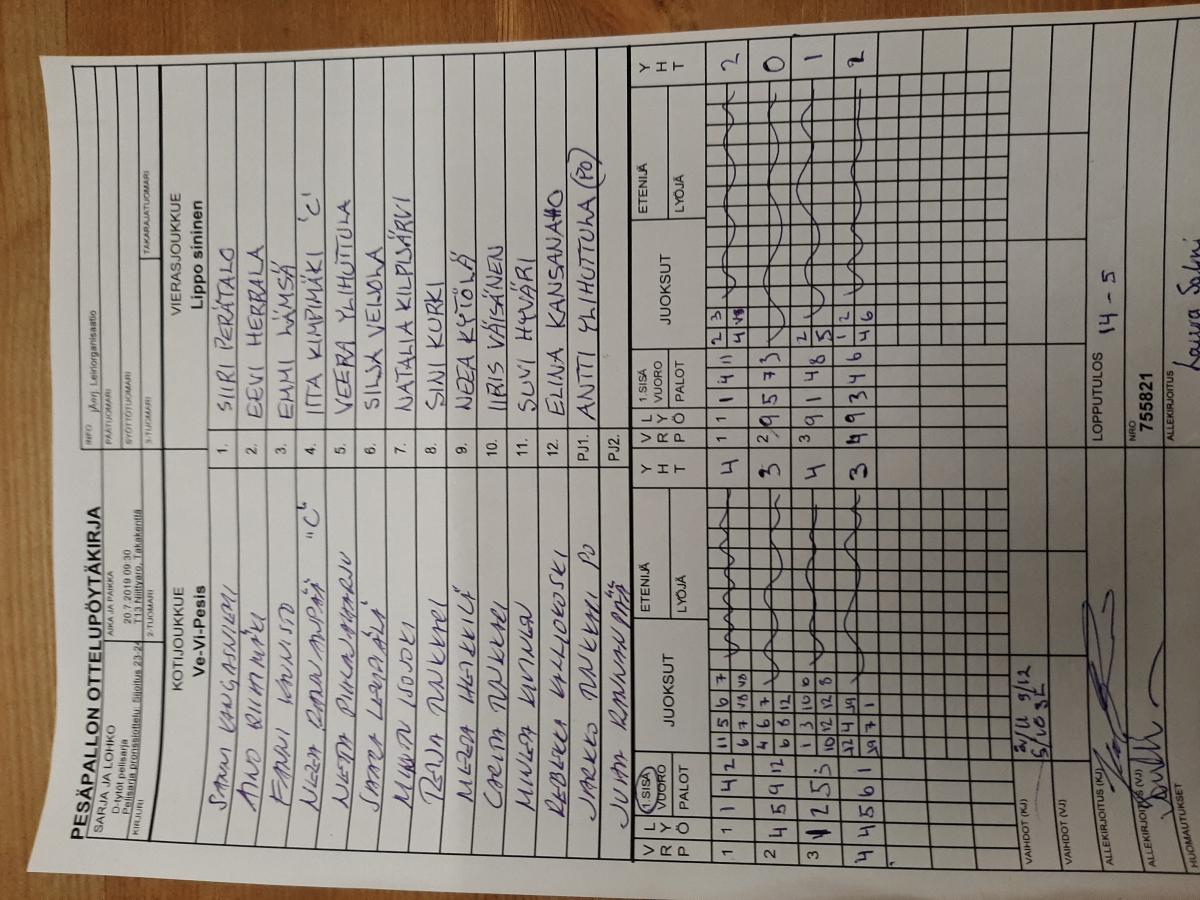 PESÄPALLON OTTELUPÖYTÄKIRJA
SARJA JA LOHKO
D-tytöt pelisarja
Pelisarja pronssiottelu: Sijoitus 23-24
AIKA JA PAIKKA
20.7.2019 09:30
T13 Niittyaro, Takakenttä
INFO
PÄÄTUOMARI
SYÖTTÖTUOMARI
KIRJURI
2-TUOMARI
3-TUOMARI
TAKARAJATUOMARI
KOTIJOUKKUE
Ve-Vi-Pesis
VIERASJOUKKUE
Lippo sininen
SAANI KANGASNIEMI 1. SIIRI PERÄTALO
AINO RIIHIMÄKI 2. EEVI HERRALA
FANNI KAUNISTO 3. EMMI LÄMSÄ
NEEA RANNANPÄÄ "C" 4. IITA KIMPIMÄKI 'C'
NEETA PIHLAJAHARJU 5. VEERA YLIHUTTULA
SAARA LEPPÄLÄ 6. SILJA VEIJOLA
MINTTU ISOJOKI 7. NATALIA KILPIJÄRVI
PEIJA PUNKKARI 8. SINI KURKI
MEEEA HEIKKILÄ 9. NEEA KYTÖLÄ
CARITA PUNKKARI 10. IIRIS VÄISÄNEN
11. SUVI HYVÄRI
REBEKKA KALLIOKOSKI 12. ELINA KANSANAHO
JARKKO PUNKKARI PO PJ1. ANTTI YLIHUTTULA (PO)
JUHA RANNANPÄÄ PJ2.
VRP LYÖ 1.SISÄ VUORO PALOT JUOKSUT ETENIJÄ LYÖJÄ YHT VRP LYÖ 1.SISÄ VUORO PALOT JUOKSUT ETENIJÄ LYÖJÄ YHT
1 1 1 4 2 11 5 6 7 4 1 1 1 4 11 2 3 2
6 7 V8 V8 4 V8
2 4 5 9 12 4 6 7 3 2 9 5 7 3 0
6 8 12
3 1 2 5 3 1 3 10 10 4 3 9 1 4 8 2 1
10 12 12 8 5
4 4 5 6 1 4 3 4 9 3 4 6 1 2 2
7 1 4 6
VAIHDOT (KJ)
VAIHDOT (VJ)
ALLEKIRJOITUS (KJ) LOPPUTULOS 14 - 5
ALLEKIRJOITUS (VJ) NRO 7558821
HUOMAUTUKSET ALLEKIRJOITUS Laura